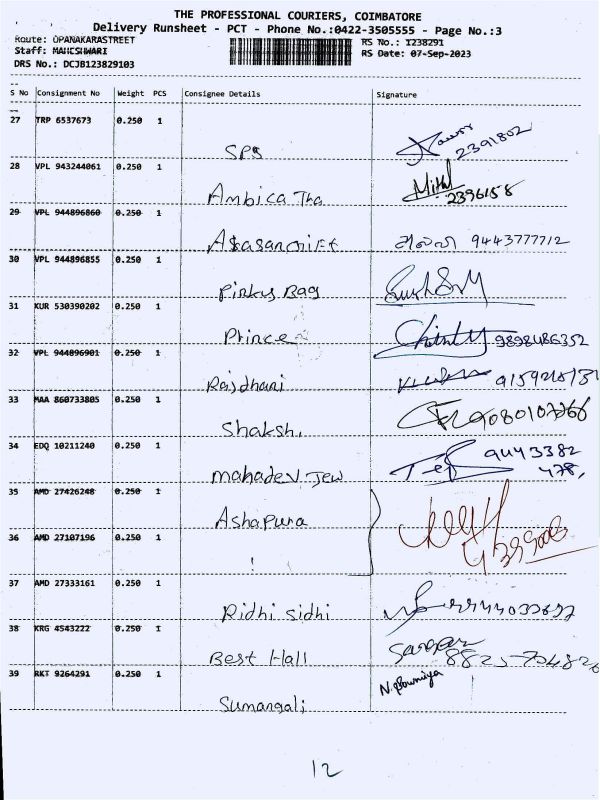 THE PROFESSIONAL COURIERS, COIMBATORE
Delivery Runsheet - PCT - Phone No.:0422-3505555 - Page No.:3
Route: OPANAKARASTREET
RS No.: 1238291
Staff: MAHESHWARI
RS Date: 07-Sep-2023
DRS No.: DCJB123829103
S No Consignment No Weight PCS Consignee Details Signature
27 TRP 6537673 0.250 1
SPS 2391802
28 VPL 943244061 0.250 1
Ambica Tha 2396158
29 VPL 944896860 0.250 1
9443777712
30 VPL 944896855 0.250 1
Pinkys Bag
31 KUR 530390202 0.250 1
Prince 9898486352
32 VPL 944896901 0.250 1
Rajdhani
33 MAA 860733805 0.250 1
Shakshi
34 EDQ 10211240 0.250 1
9443382
mahadev Jew 478,
35 AMD 27426248 0.250 1
Ashapura
36 AMD 27107196 0.250 1
37 AMD 27333161 0.250 1
Ridhi sidhi
38 KRG 4543222 0.250 1
Best Hall
39 RKT 9264291 0.250 1
Sumangali
12